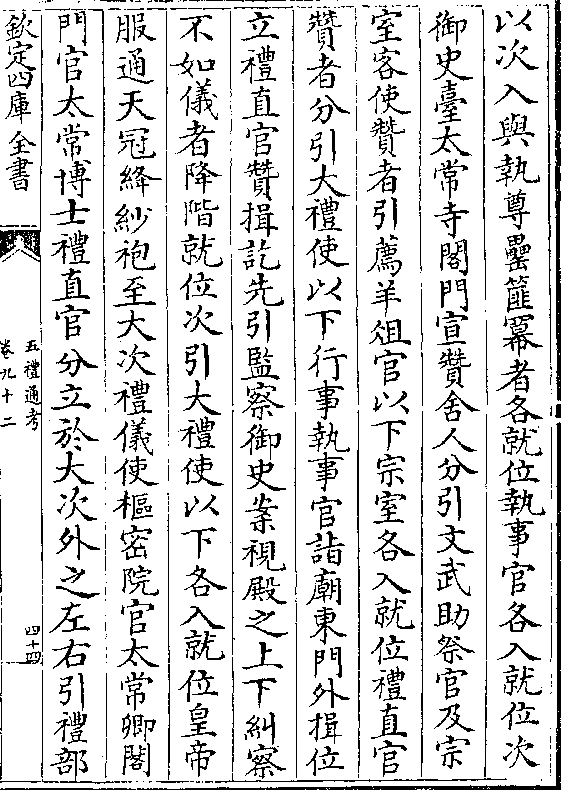 以次入與執尊罍篚冪者各就位執事官各入就位次
御史臺太常寺閤門宣贊舍人分引文武助祭官及宗
室客使贊者引薦羊俎官以下宗室各入就位禮直官
贊者分引大禮使以下行事執事官詣廟東門外揖位
立禮直官贊揖訖先引監察御史案視殿之上下糾察
不如儀者降階就位次引大禮使以下各入就位皇帝
服通天冠絳紗袍至大次禮儀使樞密院官太常卿閤
門官太常博士禮直官分立於大次外之左右引禮部
欽定四庫全書
五禮通考
卷九十二
四十四